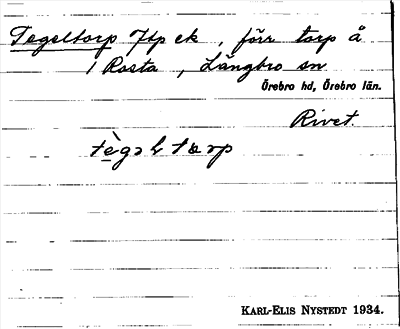 Tegeltorp 7tp ek, förr torp å
1 Rosta, Längbro sn
Örebro hd, Örebro län.
Rivet.
KARL-ELIS NYSTEDT 1934.